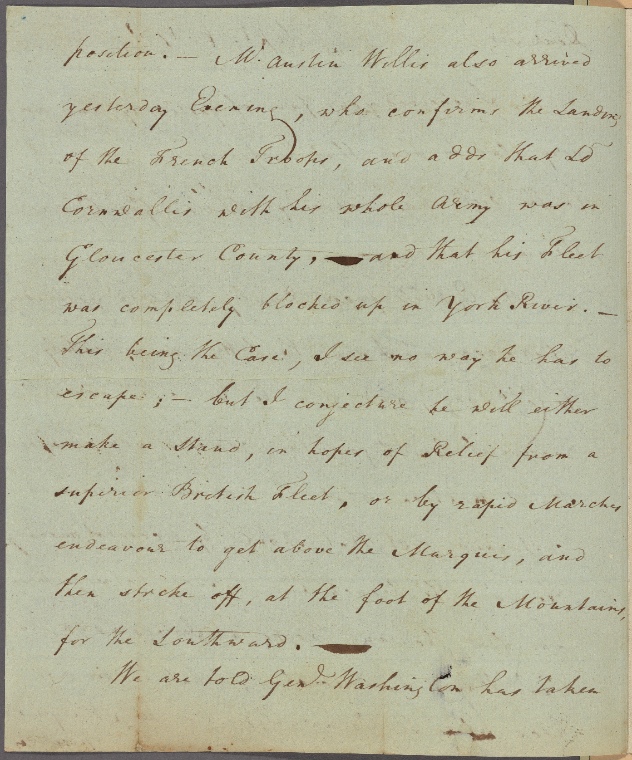 position. — Mr. Austin Willis also arrived
yesterday Evening, who confirms the Landing
of the French Troops, and adds that Ld
Cornwallis with his whole Army was in
Gloucester County, — and that his Fleet
was completely blocked up in York River. —
This being the Case, I see no way he has to
escape; — but I conjecture he will either
make a Stand, in hopes of Relief from a
superior British Fleet, or by rapid Marches
endeavour to get above the Marquis, and
then strike off, at the foot of the Mountains,
for the Southward. —
We are told Genl. Washington has taken